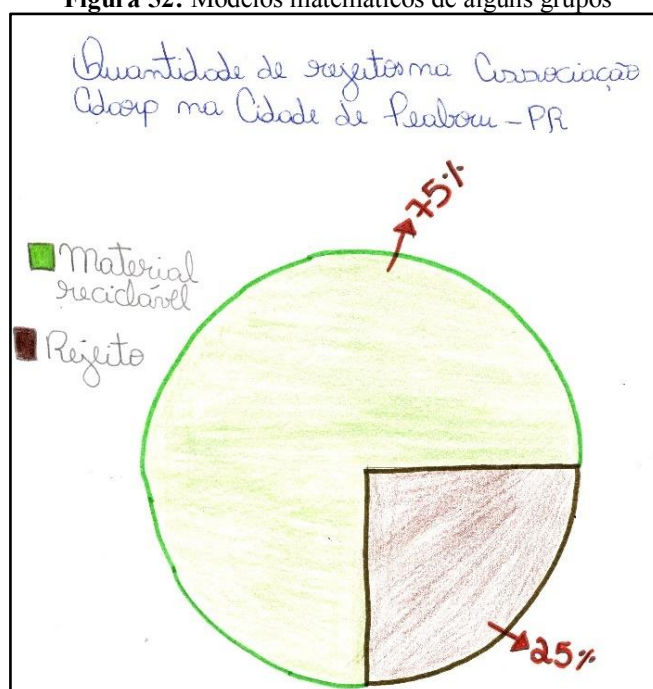 Figura 32: Modelos matemáticos de alguns grupos
Quantidade de rejeitos na Associação
na Cidade de Peabiru - PR
75%
Material
reciclável
Rejeito
25%